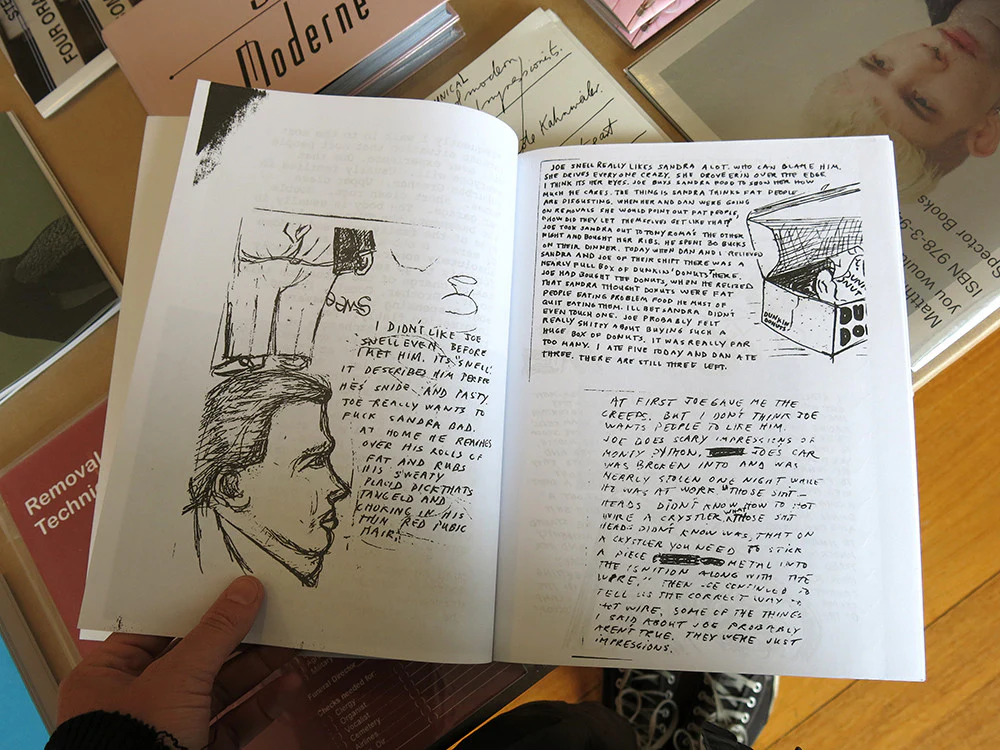 FOUR ORA
Moderne
Kahnweiler.
Spector Books
ISBN 978-3-9
you woul
Matth
Removal
Techni
I DIDN'T LIKE JOE
SNELL EVEN BEFORE
I MET HIM. ITS "SNELL"
IT DESCRIBED HIM
HE'S SNIDE AND PASTY.
JOE REALLY WANTS TO
FUCK SANDRA BAD.
AT HOME HE REACHES
OVER HIS ROLLS OF
FAT AND RUBS
HIS SWEATY
FLACID DICK THATS
TANGELD AND
CHOKING IN HIS
THIN RED PUBIC
HAIR.
JOE SNELL REALLY LIKES SANDRA A LOT. WHO CAN BLAME HIM.
SHE DRIVES EVERYONE CRAZY. SHE DROVE ERIN OVER THE EDGE.
I THINK ITS HER EYES. JOE BUYS SANDRA FOOD TO SHOW HER HOW
MUCH HE CARES. THE THING IS SANDRA THINKS FAT PEOPLE
ARE DISGUSTING. WHEN HER AND DAN WERE GOING
ON REMOVALS SHE WOULD POINT OUT FAT PEOPLE,
"HOW DID THEY LET THEMSELVES GET LIKE THAT?"
JOE TOOK SANDRA OUT TO TONY ROMA'S THE OTHER
NIGHT AND BOUGHT HER RIBS. HE SPENT 30 BUCKS
ON THEIR DINNER. TODAY WHEN DAN AND I RELIEVED
SANDRA AND JOE OF THEIR SHIFT THERE WAS A
NEARLY FULL BOX OF DUNKIN' DONUTS THERE.
JOE HAD BOUGHT THE DONUTS, WHEN HE RELIZED
THAT SANDRA THOUGHT DONUTS WERE FAT
PEOPLE EATING PROBLEM FOOD HE MUST OF
QUIT EATING THEM. I'LL BET SANDRA DIDN'T
EVEN TOUCH ONE. JOE PROBABLY FELT
REALLY SHITTY ABOUT BUYING SUCH A
HUGE BOX OF DONUTS. IT WAS REALLY FAR
TOO MANY. I ATE FIVE TODAY AND DAN ATE
THREE. THERE ARE STILL THREE LEFT.
DUNKIN
DONUTS
DU
DO
AT FIRST JOE GAVE ME THE
CREEPS. BUT I DON'T THINK JOE
WANTS PEOPLE TO LIKE HIM.
JOE DOES SCARY IMPRESSIONS OF
MONTY PYTHON. JOES CAR
WAS BROKEN INTO AND WAS
NEARLY STOLEN ONE NIGHT WHILE
HE WAS AT WORK. "THOSE SHIT-
HEADS DIDN'T KNOW HOW TO HOT
WIRE A CRYSTLER, WHAT THOSE SHIT
HEADS DIDN'T KNOW WAS, THAT ON
A CRYSTLER YOU NEED TO STICK
A PIECE METAL INTO
THE IGNITION ALONG WITH THE
WIRE." THEN JOE CONTINUED TO
TELL US THE CORRECT WAY TO
HOT WIRE. SOME OF THE THINGS
I SAID ABOUT JOE PROBABLY
AREN'T TRUE. THEY WERE JUST
IMPRESSIONS.
Funeral Director
Checks needed for:
Clergy
Organist
Vocalist
Cemetery
Airlines